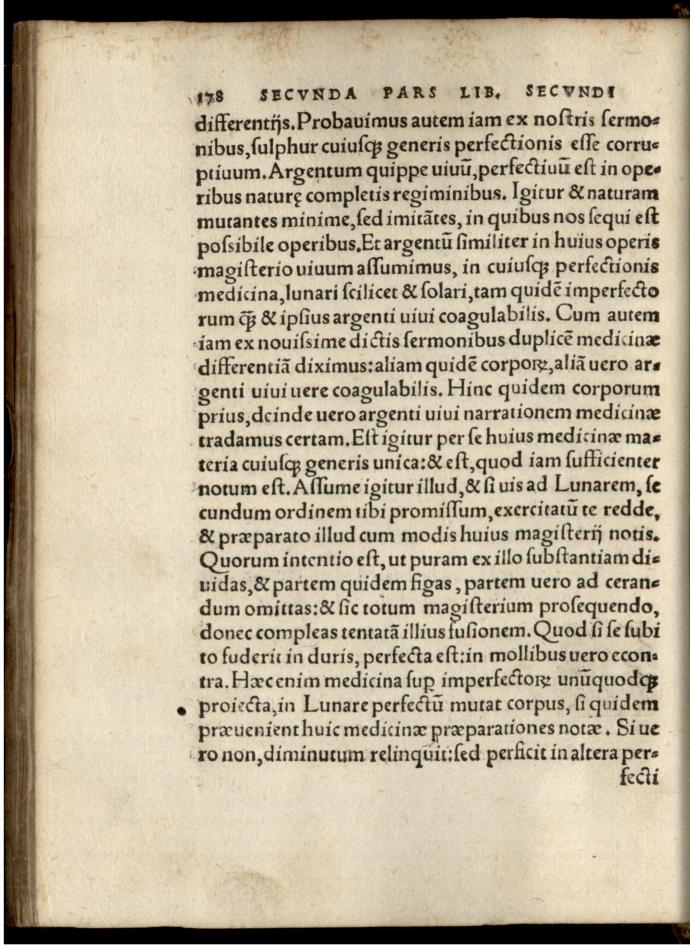 178 SECVNDA PARS LIB. SECVNDI
differentijs. Probauimus autem iam ex nostris sermo-
nibus, sulphur cuiusqꝫ generis perfectionis esse corru-
ptiuum. Argentum quippe uiuũ, perfectiuũ est in ope-
ribus naturę completis regiminibus. Igitur & naturam
mutantes minime, sed imitãtes, in quibus nos sequi est
possibile operibus. Et argentũ similiter in huius operis
magisterio uiuum assumimus, in cuiusqꝫ perfectionis
medicina, lunari scilicet & solari, tam quidẽ imperfecto
rum q̃ꝫ & ipsius argenti uiui coagulabilis. Cum autem
iam ex nouissime dictis sermonibus duplicẽ medicinæ
differentiã diximus: aliam quidẽ corporꝝ, aliã uero ar-
genti uiui uere coagulabilis. Hinc quidem corporum
prius, deinde uero argenti uiui narrationem medicinæ
tradamus certam. Est igitur per se huius medicinæ ma-
teria cuiusqꝫ generis unica: & est, quod iam sufficienter
notum est. Assume igitur illud, & si uis ad Lunarem, se
cundum ordinem tibi promissum, exercitatũ te redde,
& præparato illud cum modis huius magisterij notis.
Quorum intentio est, ut puram ex illo substantiam di-
uidas, & partem quidem figas, partem uero ad ceran-
dum omittas: & sic totum magisterium prosequendo,
donec compleas tentatã illius fusionem. Quod si se subi
to fuderit in duris, perfecta est: in mollibus uero econ-
tra. Hæc enim medicina suꝑ imperfectorꝝ unũquodqꝫ
proiecta, in Lunare perfectũ mutat corpus, si quidem
præuenient huic medicinæ præparationes notæ. Si ue
ro non, diminutum relinquit: sed perficit in altera per-
fecti